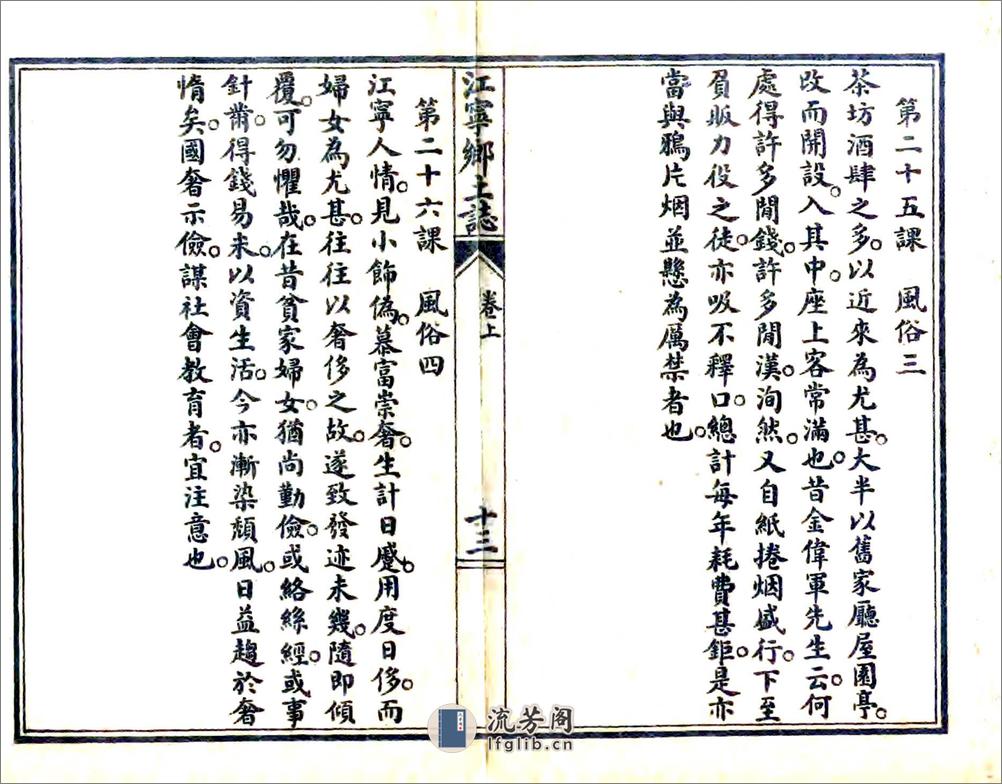 第二十五課　風俗三
茶坊酒肆之多。以近來為尤甚。大半以舊家廳屋園亭。
改而開設。入其中。座上客常滿也。昔金偉軍先生云。何
處得許多閒錢。許多閒漢。洵然。又自紙捲烟盛行。下至
負販力役之徒。亦吸不釋口。總計每年耗費甚鉅。是亦
當與鴉片烟並懸為厲禁者也。
江寧鄉土誌
卷上
十三
第二十六課　風俗四
江寧人情。見小飾偽。慕富崇奢。生計日蹙。用度日侈。而
婦女為尤甚。往往以奢侈之故。遂致發迹未幾。隨即傾
覆。可勿懼哉。在昔貧家婦女。猶尚勤儉。或絡絲經。或事
針黹。得錢易米。以資生活。今亦漸染頹風。日益趨於奢
惰矣。國奢示儉。謀社會教育者。宜注意也。
流芳阁
lfglib.cn